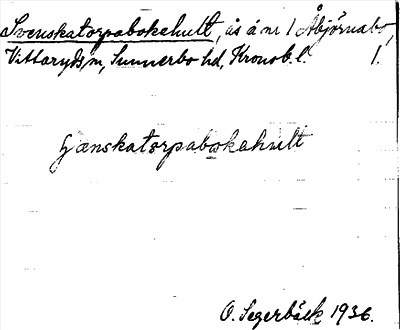 Svenskatorpabokehult, ås å nr 1 Åbjörnabo,
Vittaryds sn, Sunnerbo hd, Kronob. l. 1.
Svænskatorpabokehult
O. Segerbäck 1936.